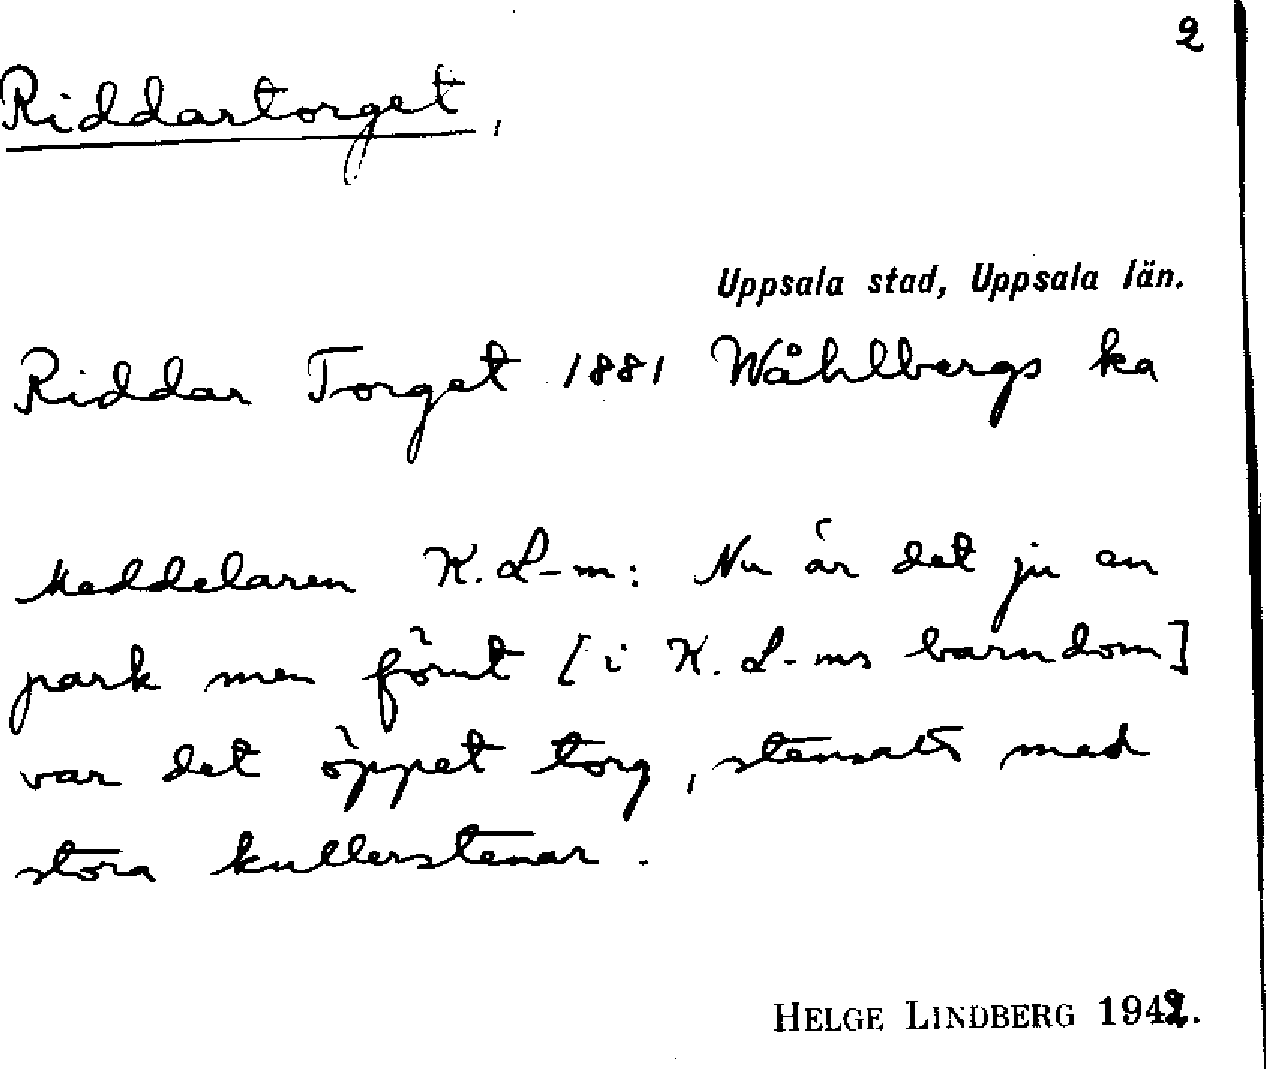 2
Riddartorget,
Uppsala stad, Uppsala län.
Riddar Torget 1881 Wåhlbergs ka
Meddelaren K. L-m: Nu är det ju en
park men förut [i K. L-ms barndom]
var det öppet torg, stensatt med
stora kullerstenar.
HELGE LINDBERG 1942.